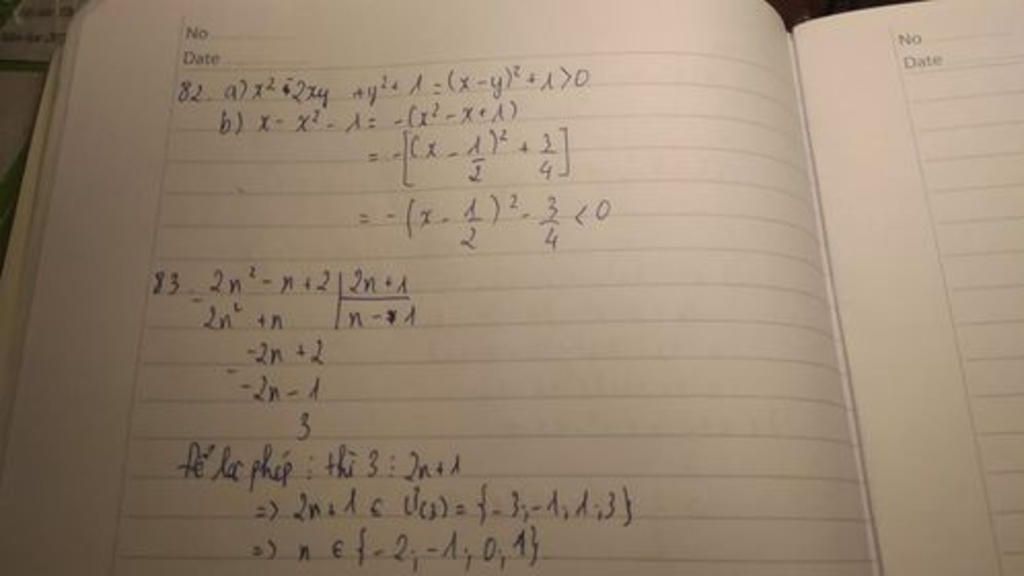 No
Date
82. a) x² - 2xy + y² + 1 = (x-y)² + 1 > 0
b) x - x² - 1 = -(x² - x + 1)
= -[(x - 1/2)² + 3/4]
= -(x - 1/2)² - 3/4 < 0
83. 2n² - n + 2 | 2n + 1
- 2n² + n | n - 1
-2n + 2
- -2n - 1
3
Để là phép ⋮ thì 3 ⋮ 2n+1
=> 2n+1 ∈ Ư(3) = {-3; -1; 1; 3}
=> n ∈ {-2; -1; 0; 1}
No
Date